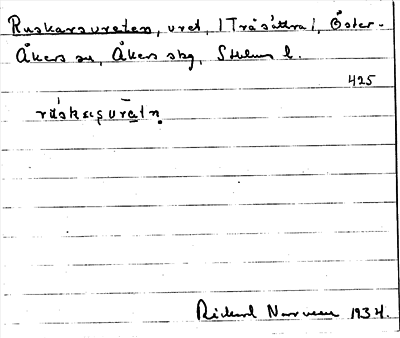 Ruskarsvreten, vret, (Träsättra), Öster-
Åkers sn, Åkers skg, Sthlms l.
425
Rickard Norveen 1934.